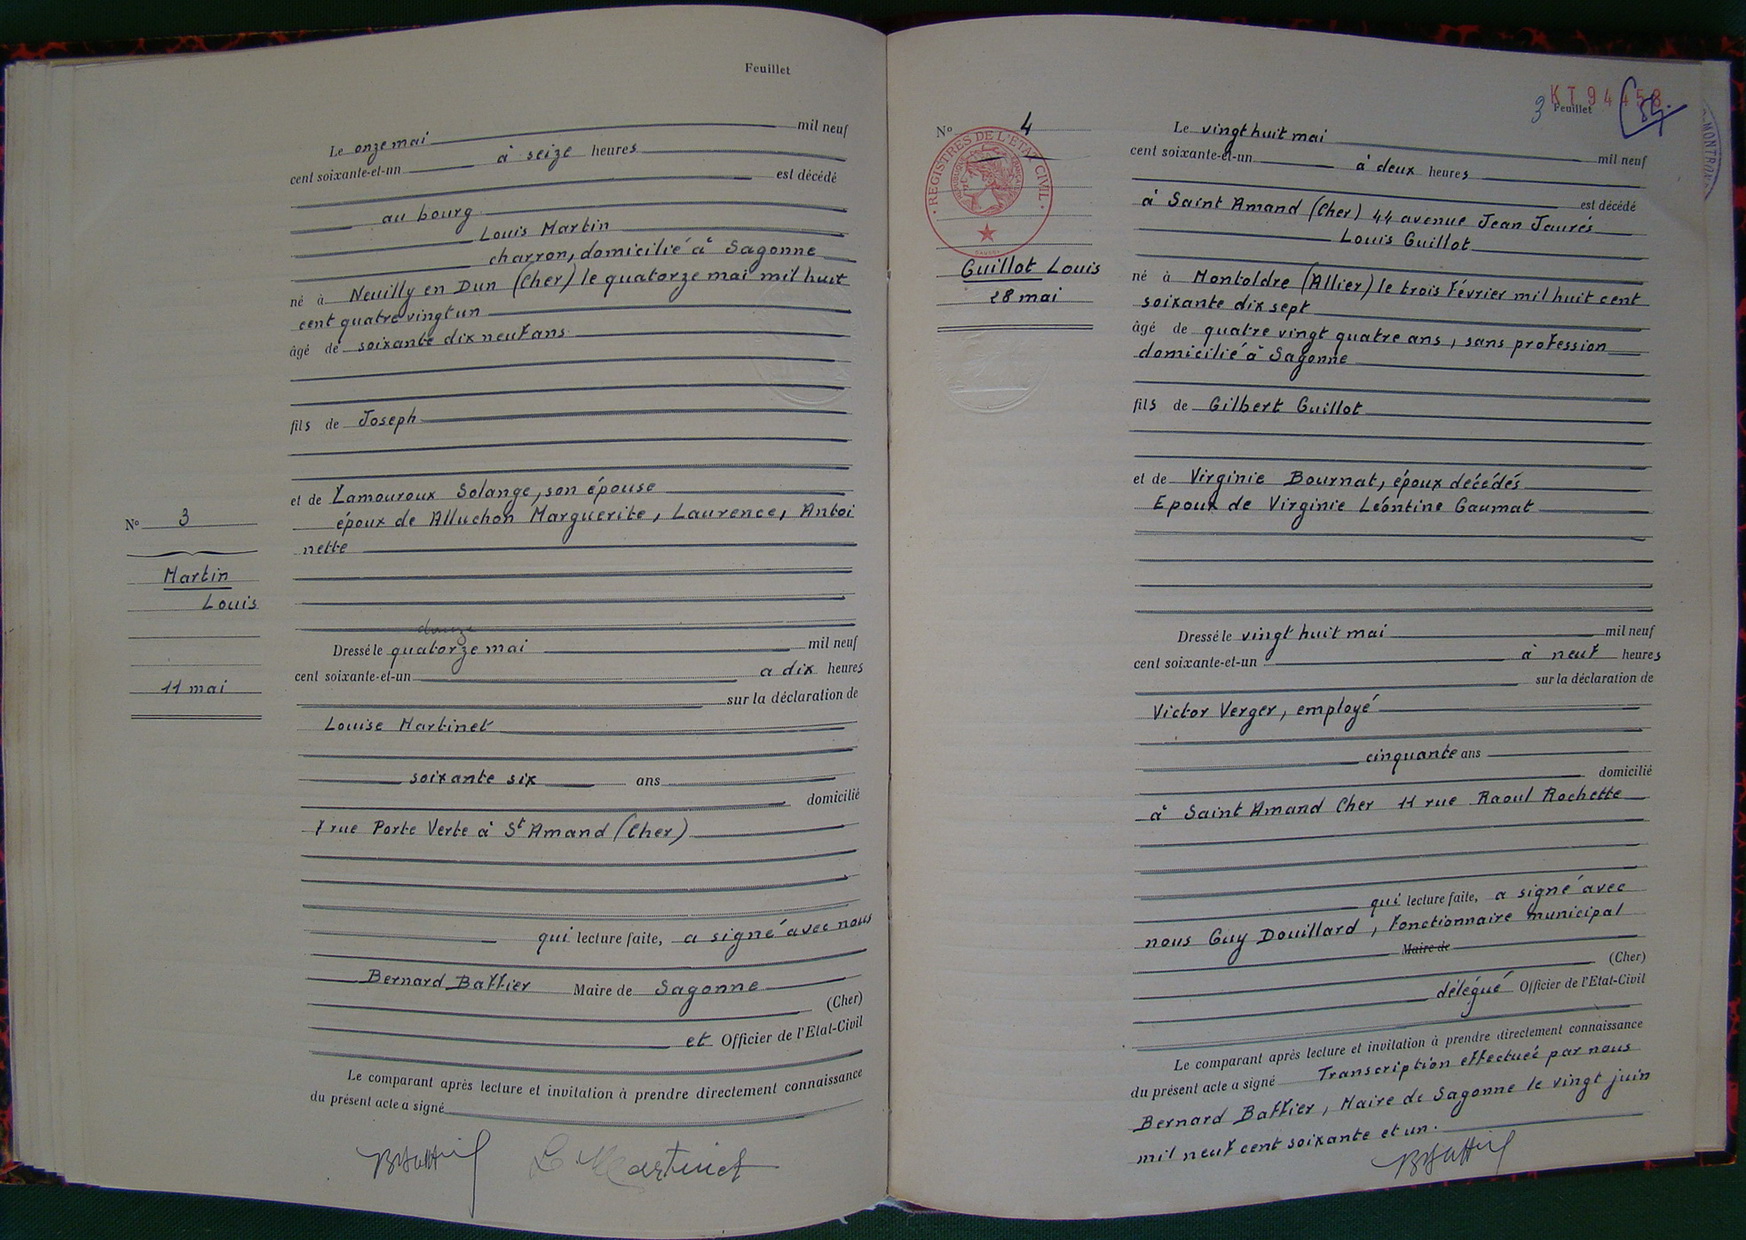 Feuillet
Le onze mai mil neuf
cent soixante-et-un à seize heures
est décédé
au bourg
Louis Martin
charron, domicilié à Sagonne
né à Neuilly en Dun (Cher) le quatorze mai mil huit
cent quatre vingt un
âgé de soixante dix neuf ans
fils de Joseph
et de Lamouroux Solange, son épouse
époux de Alluchon Marguerite, Laurence, Antoi
nette
N° 3
Martin
Louis
11 mai
douze
Dressé le quatorze mai mil neuf
cent soixante-et-un a dix heures
sur la déclaration de
Louise Martinet
soixante six ans
domicilié
7 rue Porte Verte à St Amand (Cher)
qui lecture faite, a signé avec nous
Bernard Battier Maire de Sagonne
(Cher)
et Officier de l'Etat-Civil
Le comparant après lecture et invitation à prendre directement connaissance
du présent acte a signé
L Martinet
KT94458
3 Feuillet
N° 4
REGISTRES DE L'ETAT CIVIL
Guillot Louis
28 mai
Le vingt huit mai mil neuf
cent soixante-et-un à deux heures
est décédé
à Saint Amand (Cher) 44 avenue Jean Jaurés
Louis Guillot
né à Montoldre (Allier) le trois Février mil huit cent
soixante dix sept
âgé de quatre vingt quatre ans, sans profession
domicilié à Sagonne
fils de Gilbert Guillot
et de Virginie Bournat, époux décédés
Epoux de Virginie Léontine Gaumat
Dressé le vingt huit mai mil neuf
cent soixante-et-un à neuf heures
sur la déclaration de
Victor Verger, employé
cinquante ans
domicilié
à Saint Amand Cher 11 rue Raoul Rochette
qui lecture faite, a signé avec
nous Guy Douillard, Fonctionnaire municipal
Maire de
(Cher)
délégué Officier de l'Etat-Civil
Le comparant après lecture et invitation à prendre directement connaissance
du présent acte a signé Transcription effectueé par nous
Bernard Battier, Maire de Sagonne le vingt juin
mil neuf cent soixante et un.